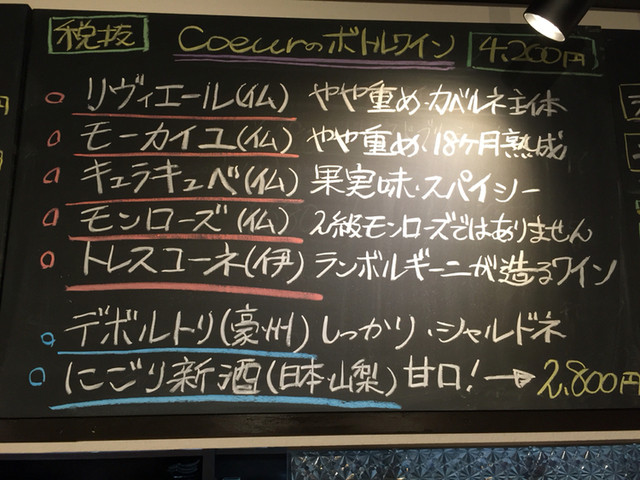 税抜 Coeurのボトルワイン 4,200円
リヴィエール(仏) やや重め・カベルネ主体
モーカイユ(仏) やや重め・18ヶ月熟成
キュラキュベ(仏) 果実味・スパイシー
モンローズ(仏) 2級モンローズではありません
トレスコーネ(伊) ランボルギーニが造るワイン
デボルトリ(豪州) しっかり・シャルドネ
にごり新酒(日本・山梨) 甘口!→2,800円